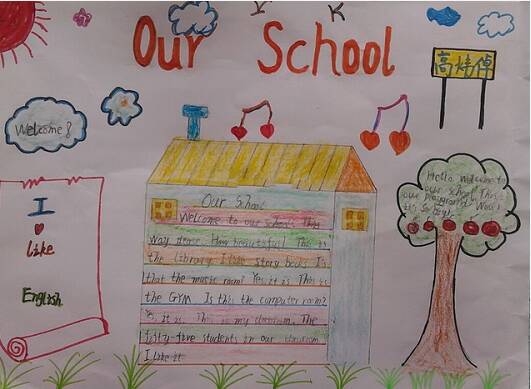 Our School
高 停
Welcome
Hello welcome to
our school This is
our playground Wow!
I
like
English
Our School
Welcome to our school This
way please How beautiful! This is
the library I like story books Is
that the music room? Yes it is This is
the GYM Is this the computer room?
Yes it is This is my classroom The
fifty-five students in our classroom
I like it